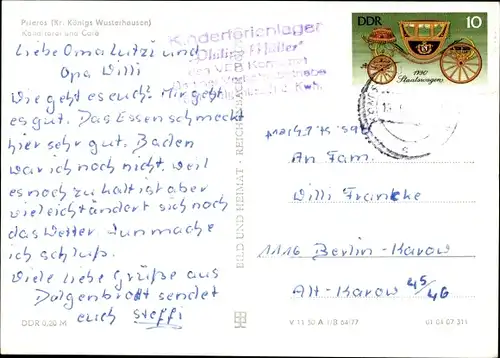 Prieros (Kr. Königs Wusterhausen)
Konditorei und Café
Liebe Oma Lutzi und
Opa Willi
Wie geht es euch? Mir geht
es gut. Das Essen schmeckt
hier sehr gut. Baden
war ich noch nicht, weil
es noch zu kalt ist aber
vieleicht ändert sich noch
das Wetter. Nun mache
ich schluß.
Viele liebe Grüße aus
Dolgenbrodt sendet
euch Steffi
DDR 0,20 M
Kinderferienlager
BILD UND HEIMAT REICHENBACH
DDR 10
1790
Staatswagen
An Fam.
Willi Francke
1116 Berlin-Karow
Alt-Karow 45/46
V 11 50 A 1/B 64/77 01 08 07 311